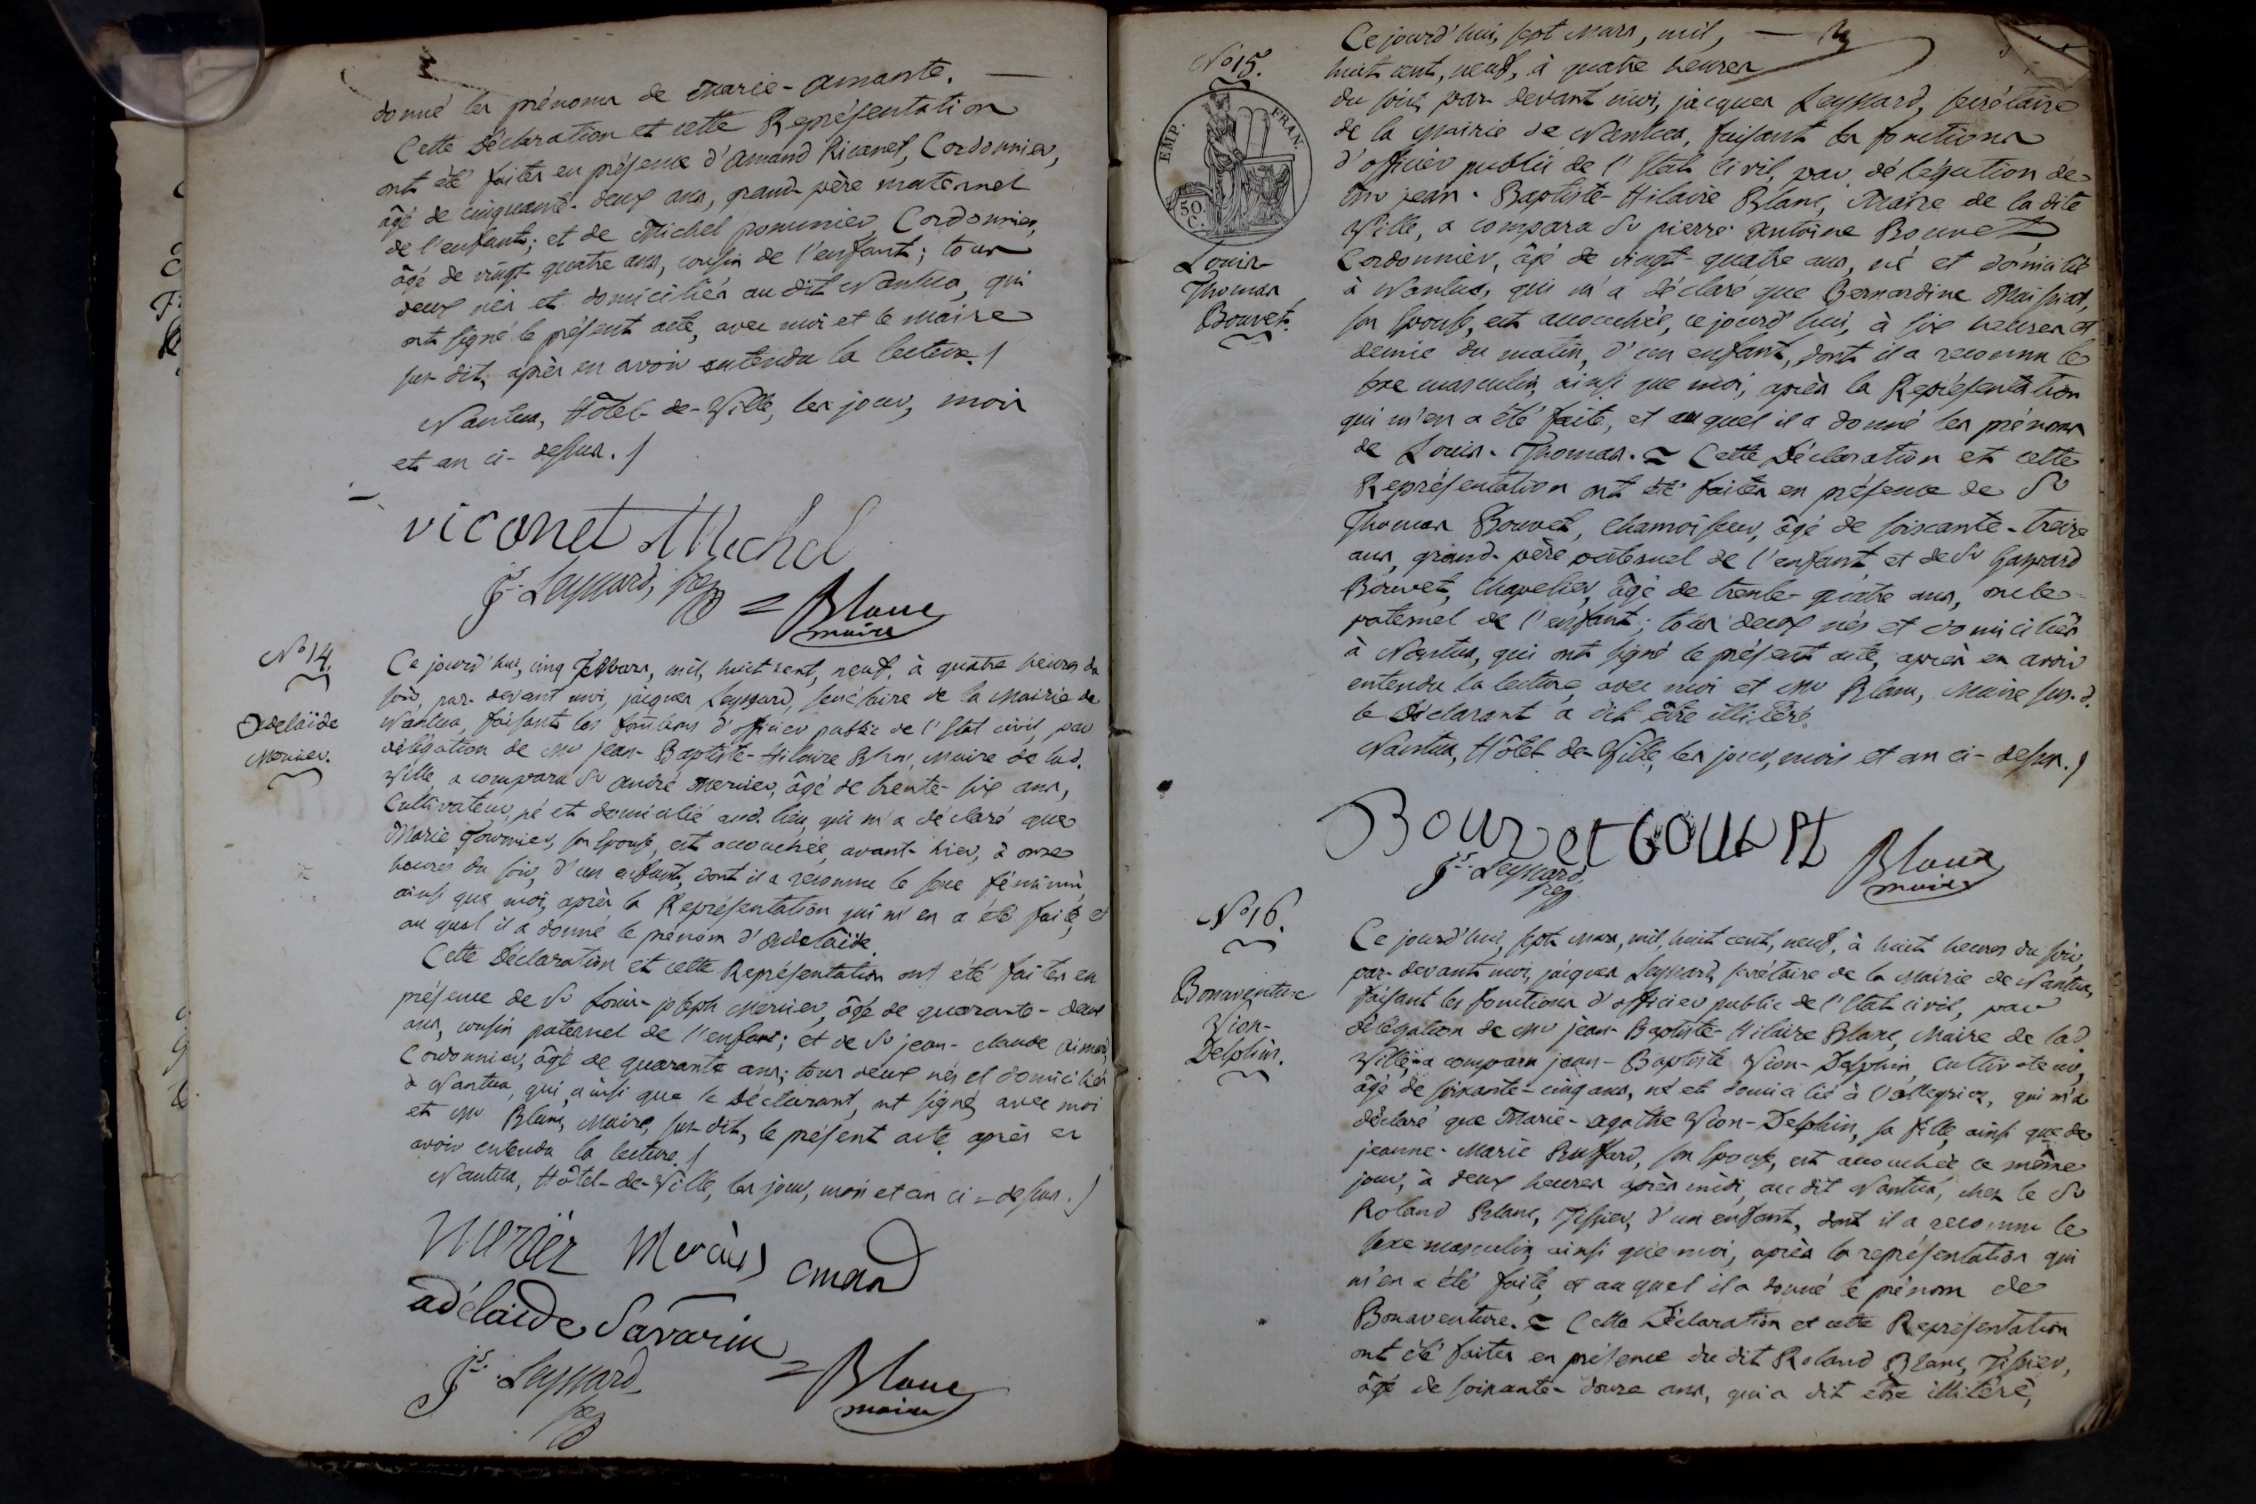 donné les prénoms de Marie-Amante. —
Cette Déclaration et cette Représentation
ont été faites en présence d'Amand Ricanet, Cordonnier,
âgé de cinquante-deux ans, grand-père maternel
de l'enfant; et de Michel pommier, Cordonnier,
âgé de vingt-quatre ans, cousin de l'enfant; tous
deux nés et domiciliés au dit Nantua, qui
ont signé le présent acte, avec moi et le Maire
sus-dit, après en avoir entendu la lecture./
Nantua, Hôtel-de-Ville, les jour, mois
et an ci-dessus./
viconet Michel
Js. Leyssard, = Blanc
maire
No 14.
Adelaïde
Mercier.
Ce jourd'hui, cinq Mars, mil, huit cent, neuf, à quatre heures du
soir, par-devant moi, jacques Leyssard, secrétaire de la Mairie de
Nantua, faisant les fonctions d'officier public de l'Etat civil, par
délégation de Mr jean-Baptiste-Hilaire Blanc, Maire de lad.
Ville, a comparu Sr andré Mercier, âgé de trente-six ans,
Cultivateur, né et domicilié aud. lieu, qui m'a déclaré que
Marie Fournier, son Epouse, est accouchée, avant-hier, à onze
heures du soir, d'un enfant, dont il a reconnu le sexe féminin,
ainsi que moi, après la Représentation qui m'en a été faite, et
au quel il a donné le prénom d'Adelaïde.
Cette Déclaration et cette Représentation ont été faites en
présence de Sr Louis-joseph Mercier, âgé de quarante-deux
ans, cousin paternel de l'enfant; et de Sr jean-claude
Cordonnier, âgé de quarante ans; tous deux nés et domiciliés
à Nantua, qui, ainsi que le Déclarant, ont signé, avec moi
et Mr Blanc, Maire, sus-dit, le présent acte, après en
avoir entendu la lecture./
Nantua, Hôtel-de-Ville, les jour, mois et an ci-dessus./
adélaide Savarin
Js. Leyssard = Blanc
maire
No 15.
EMP. FRAN.
50 C.
Louis-
Thomas
Bouvet.
Ce jourd'hui, sept Mars, mil, —
huit cent, neuf, à quatre heures
du soir, par-devant moi, jacques Leyssard, secrétaire
de la Mairie de Nantua, faisant les fonctions
d'officier public de l'Etat Civil, par délégation de
Mr jean-Baptiste-Hilaire Blanc, Maire de la dite
Ville, a comparu Sr pierre-antoine Bouvet
Cordonnier, âgé de vingt-quatre ans, né et domicilié
à Nantua, qui m'a déclaré que Bernardine Maissiat,
son Epouse, est accouchée, ce jourd'hui, à six heures et
demie du matin, d'un enfant, dont il a reconnu le
sexe masculin, ainsi que moi, après la Représentation
qui m'en a été faite, et au quel il a donné les prénoms
de Louis-Thomas. = Cette Déclaration et cette
Représentation ont été faites en présence de Sr
Thomas Bouvet, Chamoiseur, âgé de soixante-treize
ans, grand-père paternel de l'enfant, et de Sr Gaspard
Bouvet, Chapelier, âgé de trente-quatre ans, oncle
paternel de l'enfant; tous deux nés et domiciliés
à Nantua, qui ont signé le présent acte, après en avoir
entendu la lecture, avec moi et Mr Blanc, Maire sus-d.
le Déclarant a dit être illitéré.
Nantua, Hôtel-de-Ville, les jour, mois et an ci-dessus./
Js. Leyssard, Blanc
maire
No 16.
Bonaventure
Vion-
Delphin.
Ce jourd'hui, sept Mars, mil, huit cent, neuf, à huit heures du soir,
par-devant moi, jacques Leyssard, secrétaire de la Mairie de Nantua,
faisant les fonctions d'officier public de l'Etat civil, par
délégation de Mr jean-Baptiste-Hilaire Blanc, Maire de lad.
Ville, a comparu jean-Baptiste Vion-Delphin, Cultivateur,
âgé de soixante-cinq ans, né et domicilié à , qui m'a
déclaré que Marie-agathe Vion-Delphin, sa fille, ainsi que de
jeanne-Marie Buffard, son Epouse, est accouchée ce même
jour, à deux heures après midi, au dit Nantua, chez le Sr
Roland Blanc, Tissier, d'un enfant, dont il a reconnu le
sexe masculin, ainsi que moi, après la représentation qui
m'en a été faite, et au quel il a donné le prénom de
Bonaventure. = Cette Déclaration et cette Représentation
ont été faites en présence du dit Roland Blanc, Tissier,
âgé de soixante-douze ans, qui a dit être illitéré,